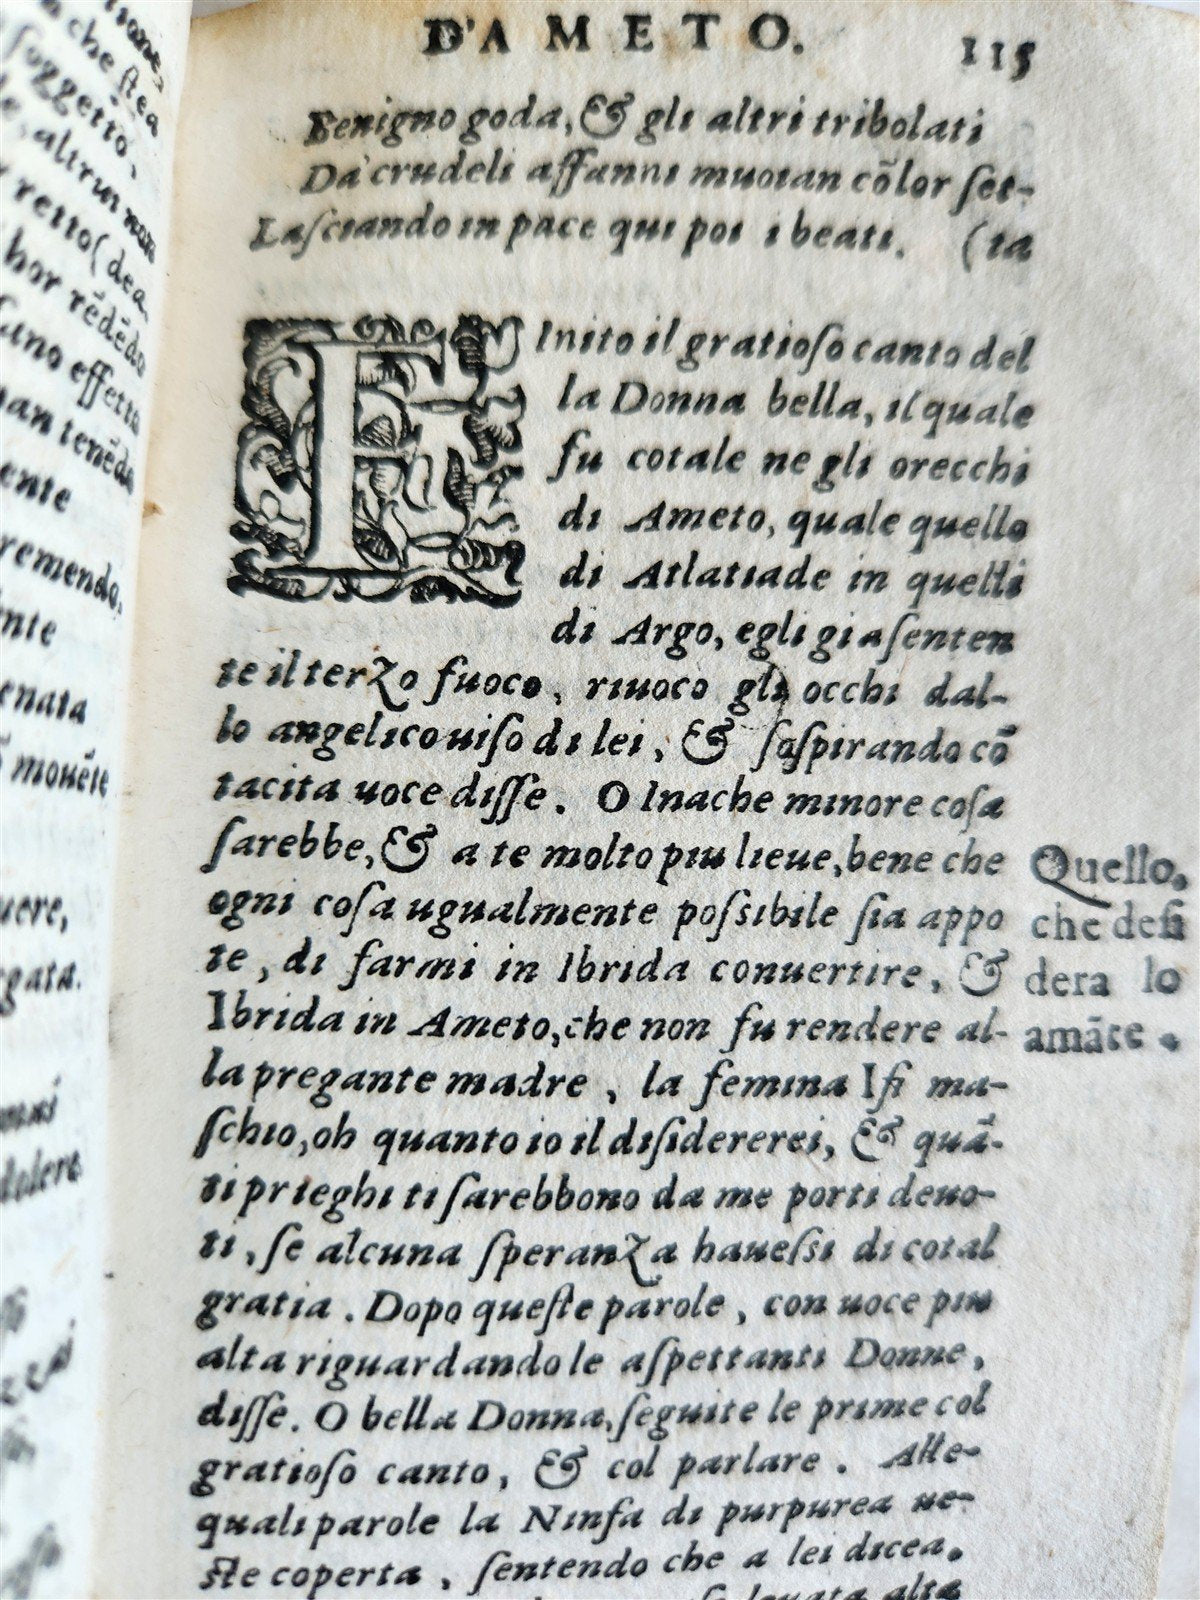 iſane,
che ſtea
ſoggetto,
altrui
retto (dea,
hor rēdēdo
effetti
tenēdo
ente
remendo,
nte
enata
mouēte
uere,
rgata.
mai
dolere
D'AMETO. 115
Benigno goda, & gli altri tribolati
Da' crudeli affanni muoian cōlor ſet-
Laſciando in pace qui poi i beati. (ta
FInito il gratioſo canto del
la Donna bella, il quale
fu cotale ne gli orecchi
di Ameto, quale quello
di Atlatiade in quelli
di Argo, egli gia ſenten
te il terzo fuoco, riuoco gli occhi dal-
lo angelico uiſo di lei, & ſoſpirando cō
tacita uoce diſſe. O Inache minore coſa
ſarebbe, & a te molto piu lieue, bene che
ogni coſa ugualmente poſsibile ſia appo
te, di farmi in Ibrida conuertire, &
Ibrida in Ameto, che non fu rendere al-
la pregante madre, la femina Iſi ma-
ſchio, oh quanto io il diſidererei, & quā-
ti prieghi ti ſarebbono da me porti deuo-
ti, ſe alcuna ſperanza haueſsi di cotal
gratia. Dopo queſte parole, con uoce piu
alta riguardando le aſpettanti Donne,
diſſe. O bella Donna, ſeguite le prime col
gratioſo canto, & col parlare. Alle-
quali parole la Ninfa di purpurea ue-
ſte coperta, ſentendo che a lei dicea,
leuata alta
Quello,
che deſi
dera lo
amāte.